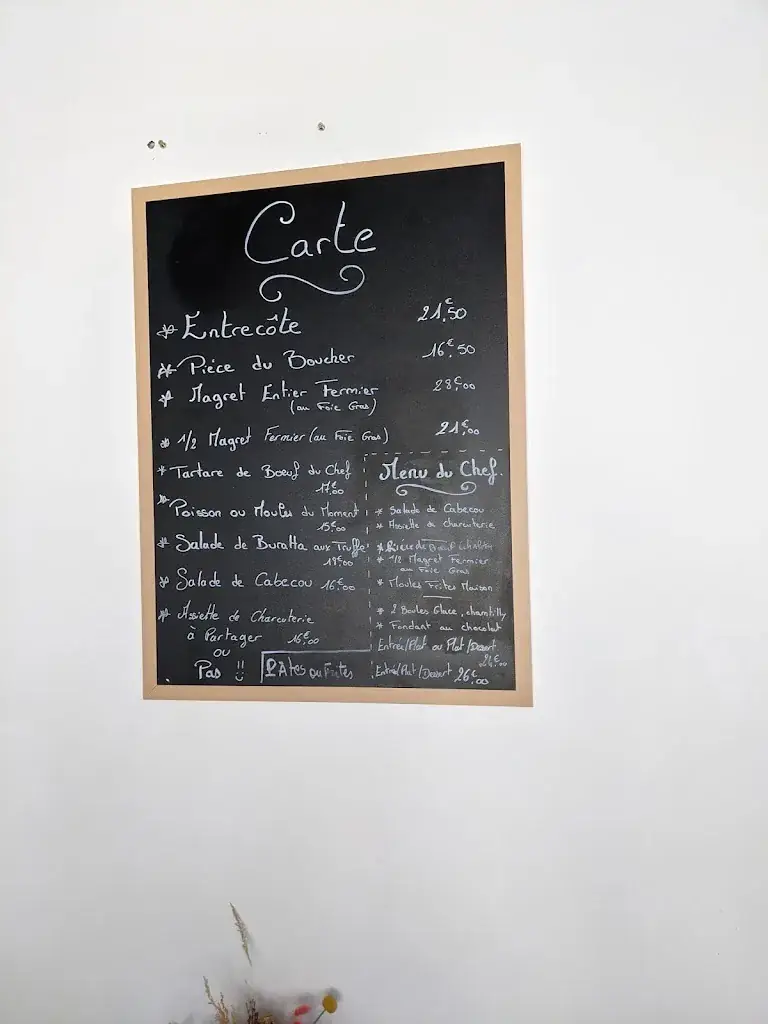 Carte
* Entrecôte 21,€50
* Pièce du Boucher 16,€50
* Magret Entier Fermier 28,€00
(au Foie Gras)
* 1/2 Magret Fermier (au Foie Gras) 21,€00
* Tartare de Boeuf du Chef
17,€00
* Poisson ou Moules du Moment
15,€00
* Salade de Buratta aux Truffe
18,€00
* Salade de Cabecou 16,€00
* Assiette de Charcuterie
à Partager 16,€00
ou
Pas !!
PÂtes ou Frites
Menu du Chef
* Salade de Cabecou
* Assiette de charcuterie
* Pièce de Boeuf échalotes
* 1/2 Magret Fermier
au Foie Gras
* Moules Frites Maison
* 2 Boules Glace, chantilly
* Fondant au chocolat
Entrée/Plat ou Plat/Dessert
Entrée/Plat/Dessert 26,€00